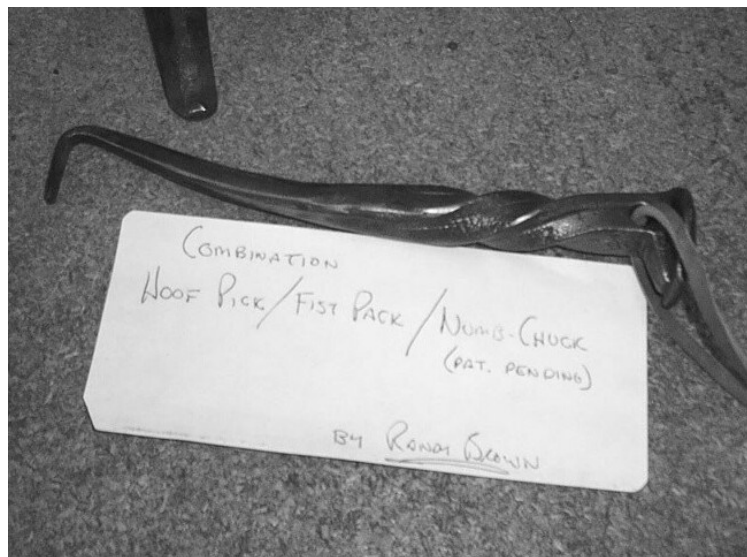 COMBINATION
HOOF PICK / FIST PACK / NUMB-CHUCK
(PAT. PENDING)
BY RANDY BROWN